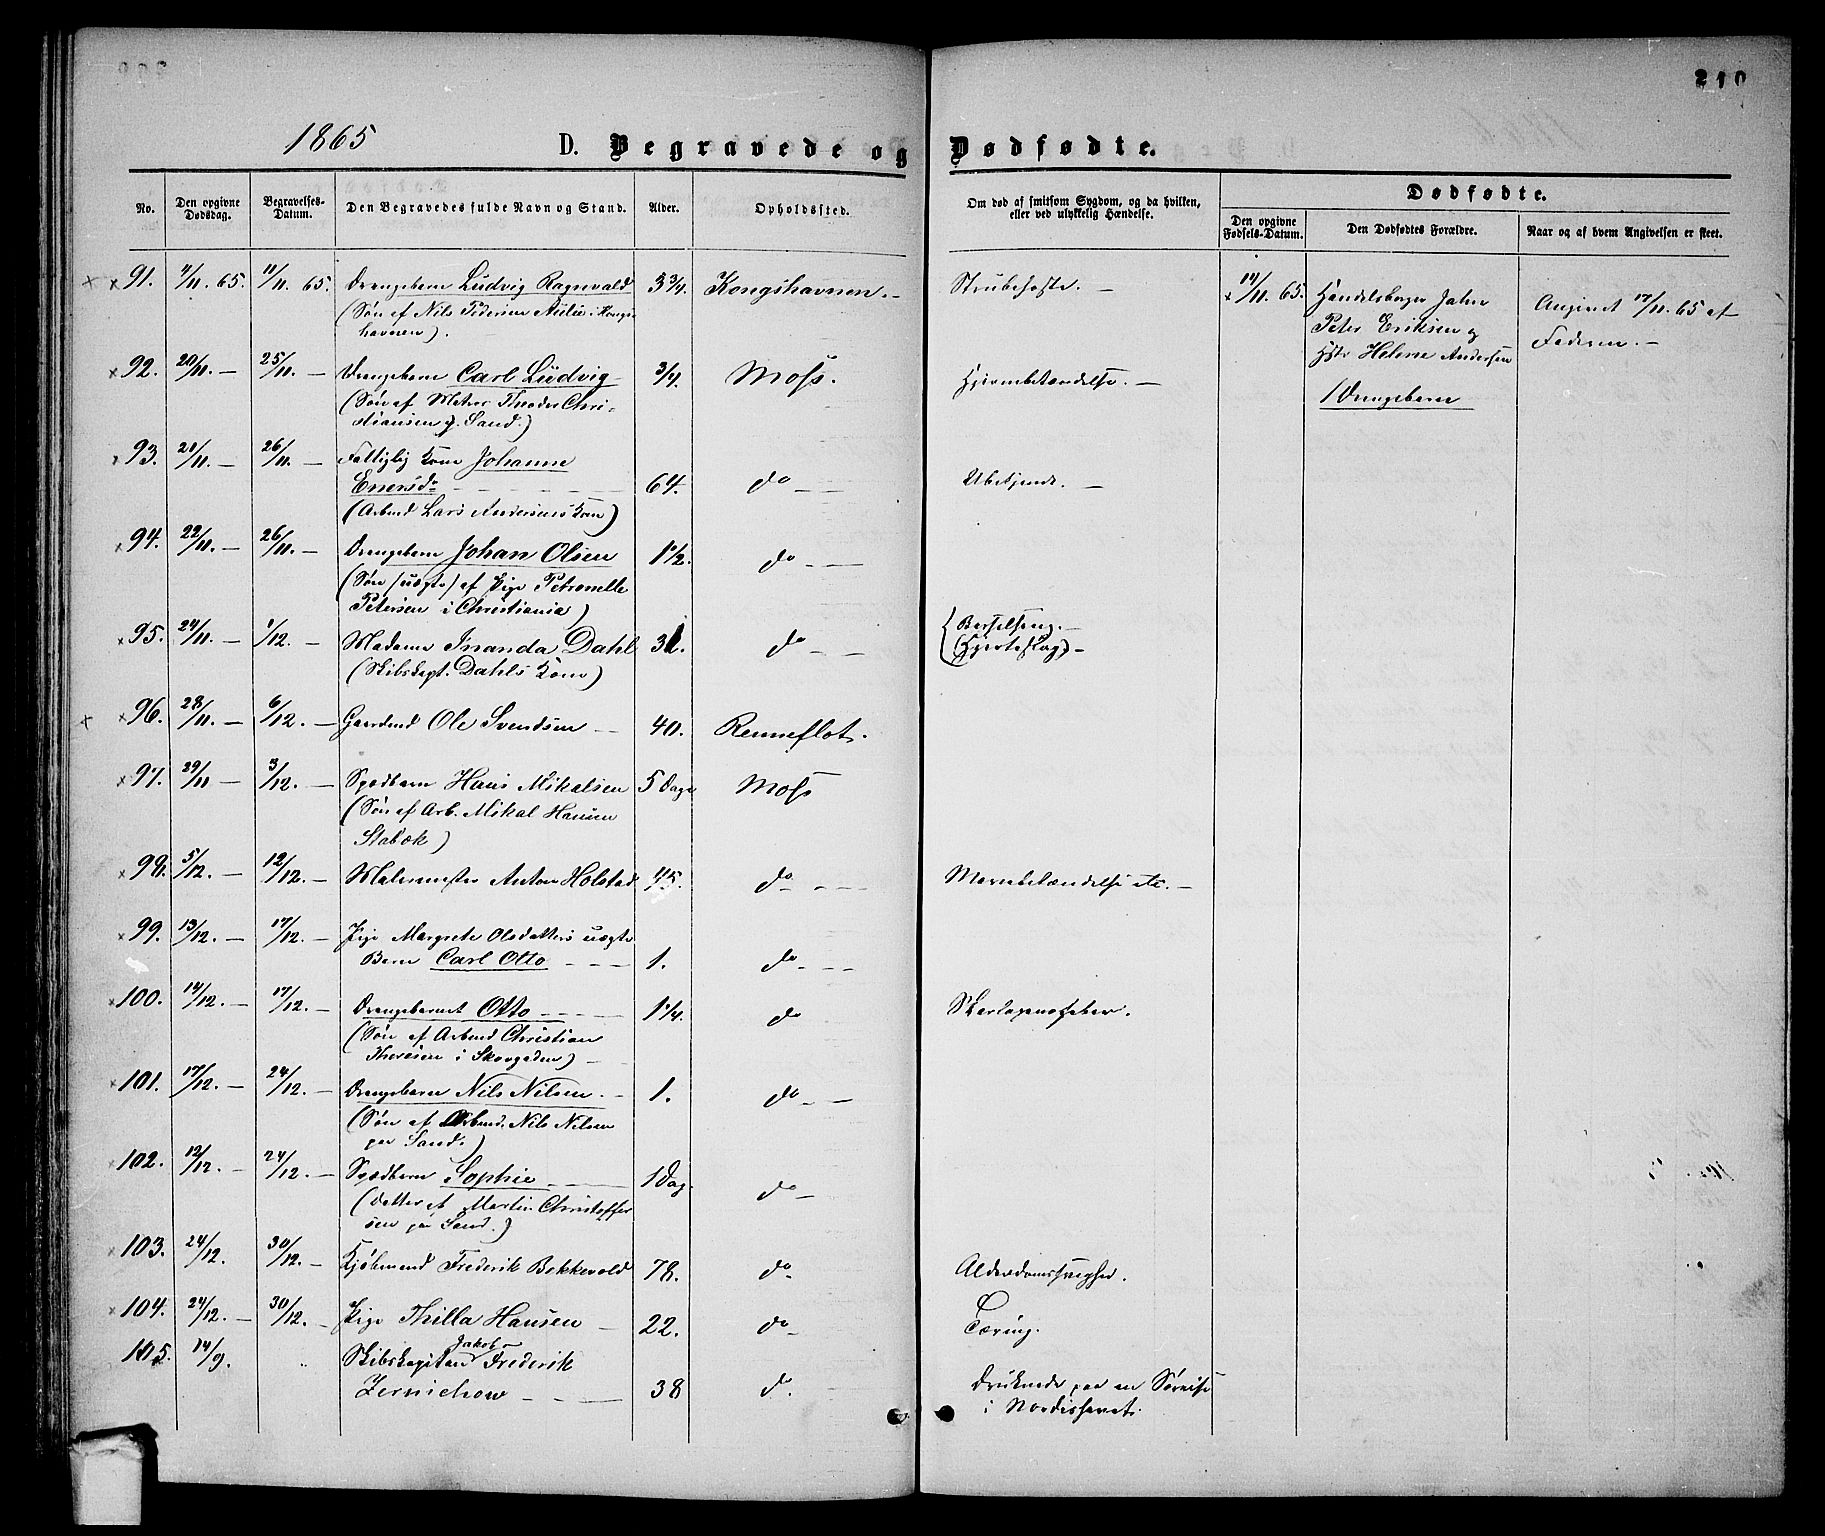 210
1865 D. Begravede og Dødfødte.
No.
Den opgivne Dødsdag.
Begravelses-Datum.
Den Begravedes fulde Navn og Stand.
Alder.
Opholdssted.
Om død af smitsom Sygdom, og da hvilken, eller ved ulykkelig Hændelse.
Dødfødte.
Den opgivne Fødsels-Datum.
Den Dødfødtes Forældre.
Naar og af hvem Angivelsen er skeet.
91. 4/11. 65. 11/11. 65. Drengebarn Ludvig Ragnvald 3 3/4. Kongshavnen. — Strubehoste. —
(Søn af Nils Pedersen i Kongs-
havnen).
14/11. 65. Handelsborger Johan
Peter Eriksen og
Hstr Helene Andersen
1 Drengebarn
Angivet 17/11. 65 af
Faderen. —
92. 20/11. — 25/11. — Drengebarn Carl Ludvig 3/4. Moss. Hjernebetændelse. —
(Søn af Matros Theodor Chri-
stiansen p. Sand.)
93. 21/11. — 26/11. — Fattiglig Kone Johanne
Enersdr 64. do — Ubekjendt. —
(Arbmd Lars Andersens Kone)
94. 22/11. — 26/11. — Drengebarn Johan Olsen 1 1/2. do —
(Søn /uægte/ af Pige Petronelle
Petersen i Christiania)
95. 24/11. — 1/12. — Madame Inanda Dahl 31. do — {Barselseng. —
(Skibskapt. Dahls Kone) (Hjerteslag) —
96. 28/11. — 6/12. — Gaardmd Ole Svendsen — 40. Renneflot.
97. 29/11 — 3/12. — Spædbarn Hans Mikalsen 5 Dage Moss
(Søn af Arb. Mikal Hansen
Stabæk)
98. 5/12. — 12/12. — Malermester Anton Holstad 45. do — Mavebetændelse etc. —
99. 13/12. — 17/12. — Pige Margrete Olsdatters uægte
Barn Carl Otto 1. do —
100. 14/12. — 17/12. — Drengebarnet Otto 1 1/4. do Skarlagensfeber.
(Søn af Arbmd Christian
Thoresen i Skovgaden)
101. 17/12. — 24/12. — Drengebarn Nils Nilsen. — 1. do —
(Søn af Arbmd. Nils Nilsen
paa Sand.)
102. 12/12. — 24/12. — Spædbarn Sophie 1 Dag. do —
(Datter af Martin Christoffer
sen paa Sand.)
103. 24/12. 30/12. — Kjøbmand Frederik Bekkevold 78. do Alderdomssvaghed.
104. 24/12. — 30/12. — Pige Thilla Hansen — 22. do — Tæring.
105. 14/9. " Skibskapitan Jakob Frederik
Zernichow 38 do. Druknede paa en Søreise
i Nordishavet.